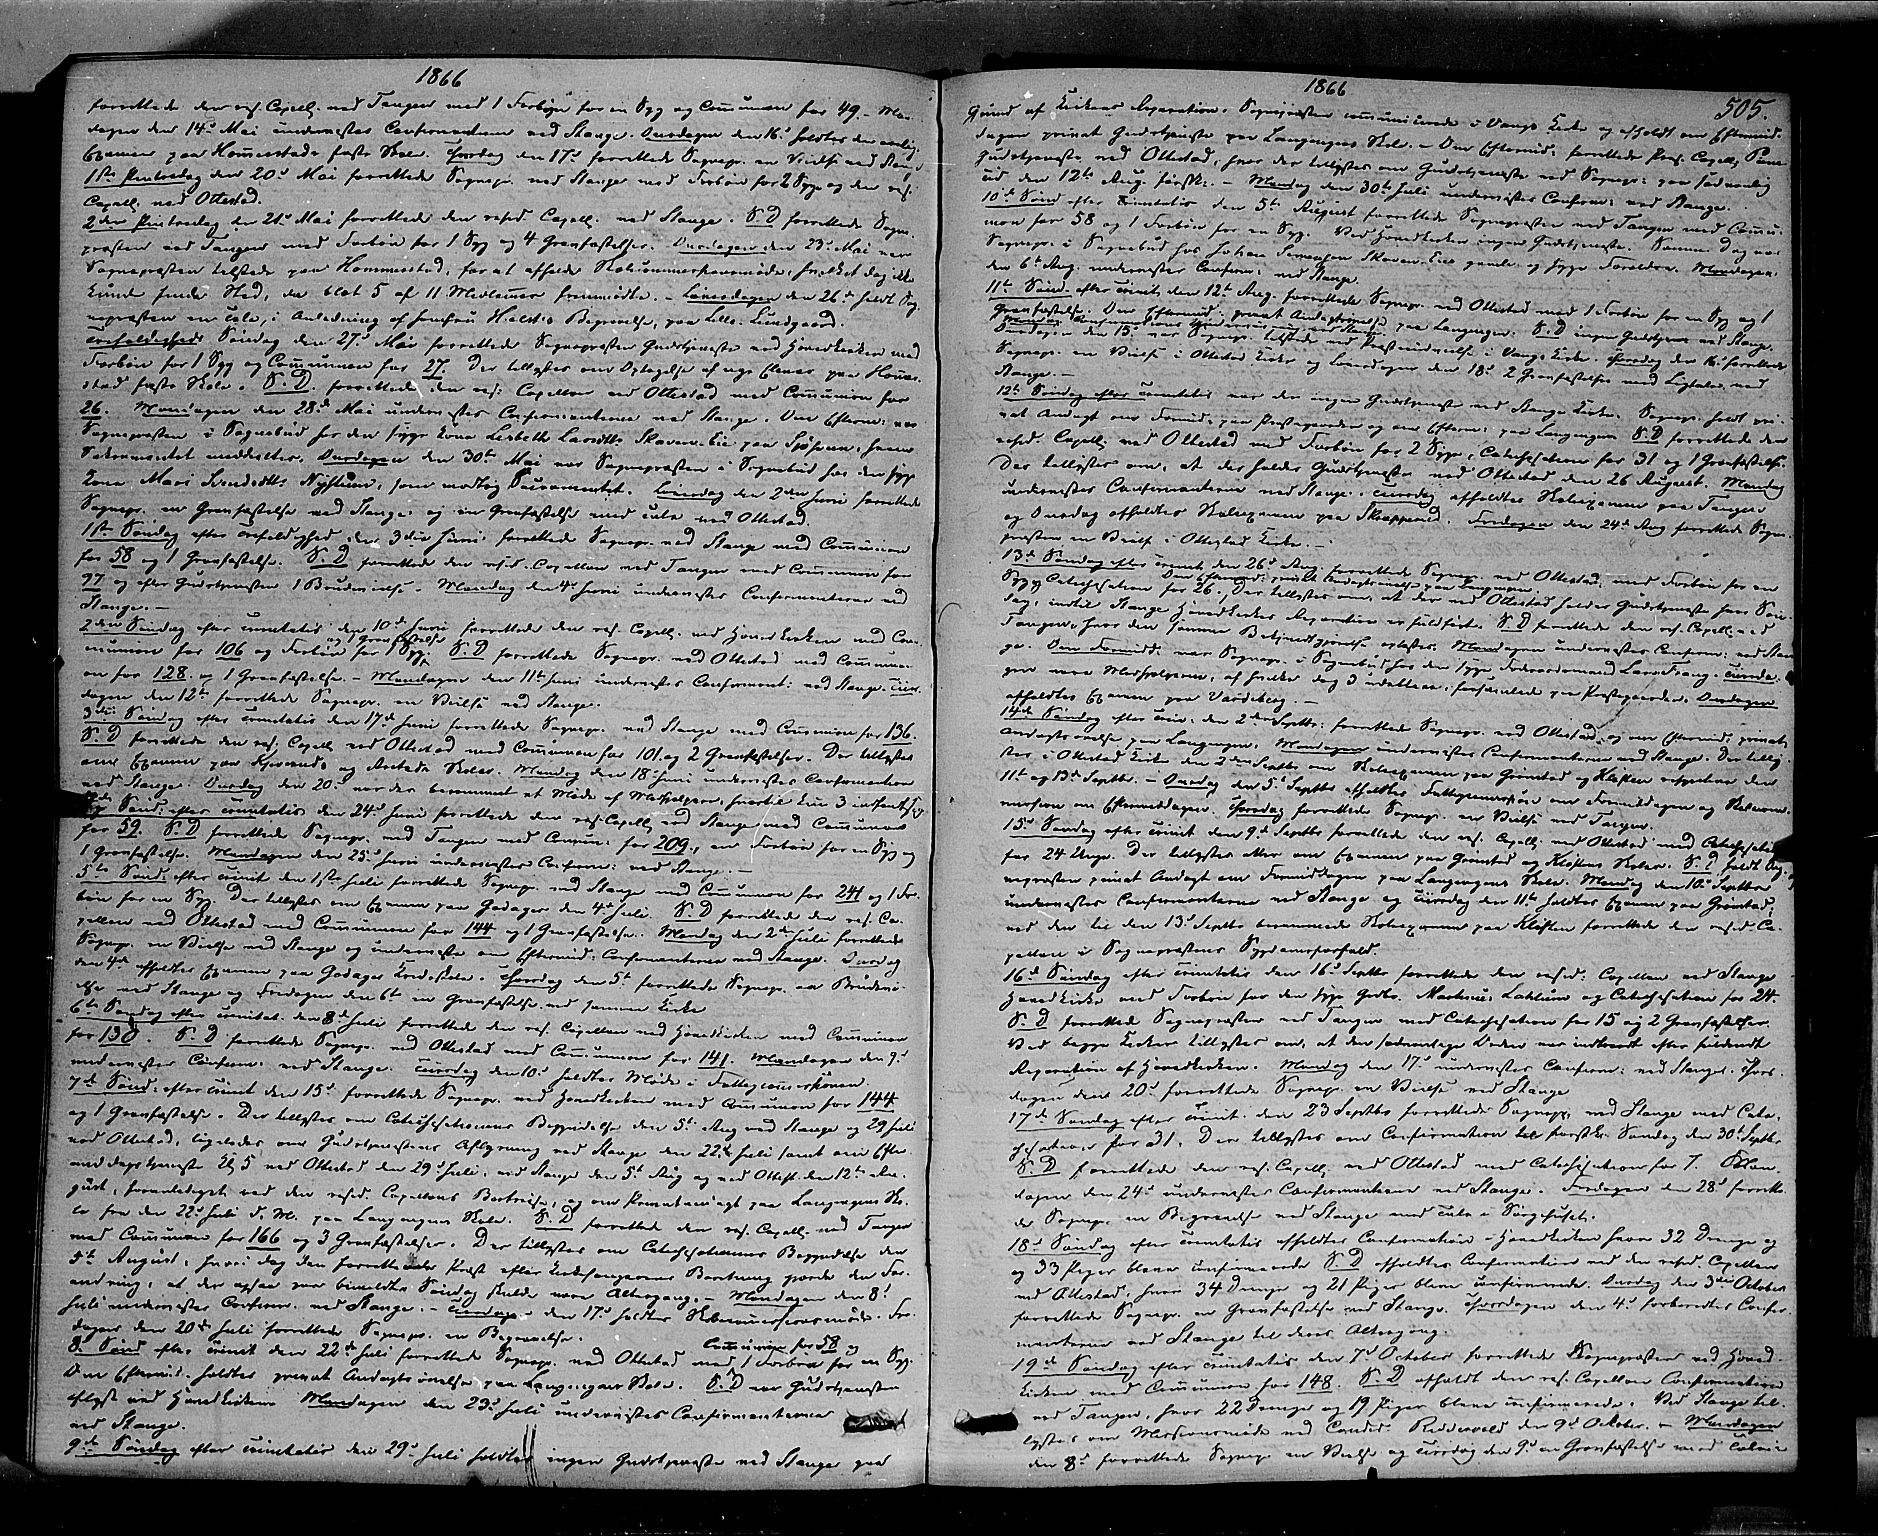 1866
forrettede den res. Capell. ved Tangen med 1 Forbøn for en Syg og Communion for 49. Man-
dagen den 14d Mai underviistes Confirmanterne ved Stange. Onsdagen den 16d holdtes den aarlig
Examen paa Hommerstads faste Skole. Thorsdag den 17d forrettede Sognepr. en Vielse ved Stange
1ste Pintsedag den 20d Mai forrettede Sognepr. ved Stange med Forbøn for 2 Syge og den res.
Capell. ved Ottestad.
2den Pintsedag den 21d Mai forrettede den resid. Capell. ved Stange. S.D. forrettede Sogne-
præsten ved Tangen med Forbøn for 1 Syg og 4 Gravfæstelser. Onsdagen den 23d Mai var
Sognepræsten tilstede paa Hommerstad, for at afholde Skolecommissionsmøde, hvilket dog ikke
kunde finde Sted, da blot 5 af 11 Medlemmer fremmødte. - Løverdagen den 26d holdt Sog-
nepræsten en Tale, i Anledning af Jomfru Begravelse, paa Lille Lundgaard.
Trefoldigheds Søndag den 27d Mai forrettede Sognepræsten Gudstjeneste ved Hovedkirken med
Forbøn for 1 Syg og Communion for 27. Der tillystes om Optagelse af nye Elever paa Hommer-
stad faste Skole. S.D. forrettede den res: Capellan ved Ottestad med Communion for
26. Mandagen den 28d Mai underviistes Confirmanterne ved Stange. Om Efterm: var
Sognepræsten i Sognebud hos den syge Kone Lisbeth Larsdtr. Skaven-Eie paa hvem
Sakramentet meddeltes. Onsdagen den 30te Mai var Sognepræsten i Sognebud hos den syge
Kone Mari som modtog Sacramentet. Løverdag den 2den Juni forrettede
Sognepr. en Gravfæstelse ved Stange: og en Gravfæstelse med Tale ved Ottestad.
1ste Søndag efter Trefoldighed den 3die Juni forrettede Sognepr. ved Stange med Communion
for 58 og 1 Gravfæstelse. S.D. forrettede den resid. Capellan ved Tangen med Communion for
97 og efter Gudstjenesten 1 Brudevielse. Mandag den 4d Juni underviistes Confirmanterne ved
Stange. -
2den Søndag efter Trinitatis den 10d Juni forrettede den res. Capell. ved Hovedkirken med Com-
munion for 106 og Forbøn for 1 Syg og 1 Gravfæstelse. S.D. forrettede Sognepr. ved Ottestad med Communi-
on for 128. og 1 Gravfæstelse. - Mandagen den 11te Juni underviistes Confirmant: ved Stange. Tirs-
dagen den 12te forrettede Sognepr. en Vielse ved Stange.
3die Søndag efter Trinitatis den 17d Juni forrettede Sognepr. ved Stange med Communion for 136.
S.D. forrettede den res. Capell ved Ottestad med Communion for 101. og 2 Gravfæstelser. Der tillystes
om Examen paa og Skoler. Mandag den 18d Juni underviistes Confirmanterne
ved Stange. Onsdag den 20d var der berammet et Møde af Medhjelpere, hvortil kun 3 indfandt sig
4de Sønd: efter Trinitatis den 24d Juni forrettede den res. Capell. ved Stange med Communion
for 59. S.D. forrettede Sognepr. ved Tangen med Commun: for 209, en Forbøn for en Syg og
1 Gravfæstelse. Mandagen den 25d Juni underviistes Confirm: ved Stange. -
5te Sønd: efter Trinit. den 1ste Juli forrettede Sognepr. ved Stange med Communion for 241 og 1 For-
bøn for en Syg. Der tillystes om Examen paa Godager den 4d Juli. S.D. forrettede den res. Ca-
pellan ved Ottestad med Communion for 144 og 1 Gravfæstelse. Mandag den 2d Juli forrettede
Sognepr. en Vielse ved Stange og underviiste om Efterm: Confirmanterne ved Stange. Onsdag
den 4d afholdtes Examen paa Godager Kredsskole. Thorsdag den 5te forrettede Sognepr. en Brudevi-
else ved Stange og Fredagen den 6te en Gravfæstelse ved samme Kirke
6te Søndag efter Trinitat. den 8d Juli forrettede den res. Capellan ved Hovedkirken med Communion
for 138. S.D. forrettede Sognepr. ved Ottestad med Communion for 141. Mandagen den 9d
underviistes Confirm: ved Stange. Tirsdag den 10d holdtes Møde i Fattigcommissionen.
7de Sønd: efter Trinit den 15d forrettede Sognepr. ved Hovedkirken med Communion for 144
og 1 Gravfæstelse. Der tillystes om Catechisationens Begyndelse den 5te Aug ved Stange og 29 Juli
ved Ottestad, ligeledes om Gudstjenestens Aflysning ved Stange den 22d Juli samt om Efter-
middagstjeneste Kl 5 ved Ottestad den 29d Juli, ved Stange den 5te Aug og ved Ottest. den 12te Au-
gust, foranlediget ved den resid. Capellans Bortreise, og om Privatandagt paa Langangens Sko-
le fra den 22d Juli d. M. paa Langangens Skole. S.D. forrettede den res. Capell. ved Tangen
med Communion for 166 og 3 Gravfæstelser. Der tillystes om Catechisationens Begyndelse den
5te August, hvori dog den forrettende Præst efter Kirkesangerens Beretning gjorde den For-
andring, at der ogsaa paa bemeldte Søndag skulde være Altergang. - Mandagen den 8d
Juli underviistes Confirm. ved Stange. - Tirsdagen den 17d holdtes Skolecommissionsmøde. Fre-
dagen den 20d Juli forrettede Sognepr. en Begravelse.
8. Sønd efter Trinit den 22de Juli forrettede Sognepr. ved Ottestad med Communion for 58 og 1 Forbøn for en Syg.
Om Eftermid. holdtes privat Andagtsøvelse paa Langangens Skole. S.D. var Gudstjenesten
aflyst ved Hovedkirken. Mandagen den 23d Juli underviistes Confirmanterne
ved Stange.
9de Søndag efter Trinitatis den 29d Juli holdtes ingen Gudstjeneste ved Stange paa
1866
505.
Grund af Kirkens Reparation. Sognepræsten communicerede i Vangs Kirke og afholdt om Eftermid-
dagen privat Gudstjeneste paa Langangens Skole. - Om Eftermid. forrettede Pers. Capell.
Gudstjeneste ved Ottestad, hvor der tillystes om Gudstjeneste ved Sognepr: paa sædvanlig
Tid den 12te Aug. førstk: - Mandag den 30te Juli underviistes Confirm: ved Stange.
10de Sønd efter Trinitatis den 5te August forrettede Sognepræsten ved Tangen med Commu-
nion for 58 og 1 Forbøn for en Syg. Ved Hovedkirken ingen Gudstjeneste. Samme Dag var
Sognepr. i Sognebud hos Johan Simensen Skaven-Eies gamle og syge Forældre. Mandagen
den 6te Aug. underviistes Confirm: ved Stange.
11te Sønd. efter Trinit, den 12te Aug. forrettede Sognepr. ved Ottestad med 1 Forbøn for en Syg og 1
Gravfæstelse. Om Eftermid: privat Andagtsøvelse paa Langangen. S.D. ingen Gudstjen. ved Stange.
Mandag Confirmations Underviisning ved Stange.
Onsdagen den 15d var Sognepr. tilstede ved Præsteindvielse i Vangs Kirke. Thorsdag den 16d forrettede
Sognepr. en Vielse i Ottestad Kirke og Løverdagen den 18d 2 Gravfæstelser med Ligtale, ved
Stange. -
12te Søndag efter Trinitatis var der ingen Gudstjeneste ved Stange Kirke. Sognepr. holdt pri-
vat Andagt om Formid: paa Præstegaarden og om Efterm: paa Langangen. S.D. forrettede den
resid. Capell. ved Ottestad med Forbøn for 2 Syge, Catechisation for 31 og 1 Gravfæstelse.
Der tillystes om, at der holdes Gudstjeneste ved Ottestad den 26 August. Mandag
underviistes Confirmanterne ved Stange. Tirsdag afholdtes Skoleexamen paa Tangen
og Onsdag afholdtes Skoleexamen paa Fredagen den 24d Aug forrettede Sogne-
præsten en Vielse i Ottestad Kirke. -
13de Søndag efter Trinit den 26d Aug. forrettede Sognepr. ved Ottestad, med Forbøn for en
Syg og Catechisation for 26. Om Eftermid: privat Andagtsøvelse paa Langangen. Der tillystes om, at der ved Ottestad holdes Gudstjeneste hver Søn-
dag, indtil Stange Hovedkirkes Reparation er fuldført. S.D. forrettede den res. Capell. ved
Tangen, hvor den samme Bekjendtgjørelse oplæstes. Mandagen underviistes Confirm: ved Stan-
ge. Om Formid: var Sognepr. i Sognebud hos den syge Lars Trang. Tirsda-
gen vare Medhjelperne, af hvilke dog 3 udebleve, forsamlede paa Præstegaarden. Onsdagen
afholdtes Examen paa Vardeberg -
14de Søndag efter Trin: den 2den Septbr: forrettede Sognepr. ved Ottestad, og om Eftermid. privat
Andagtsøvelse paa Langangen. Mandagen underviistes Confirmanterne ved Stange. Der tillys-
tes i Ottestad Kirke den 2den Septbr om Skoleexamen paa Grønstad og Kleften respective den
11te og 13de Septbr. - Onsdag den 5te Septbr afholdtes Fattigcommission om Formiddagen og Skolecom-
mission om Eftermiddagen. Thorsdag forrettede Sognepr. en Vielse ved Tangen.
15de Søndag efter Trinit den 9d Septbr forrettede den res. Capell. ved Ottestad med Catechisation
for 24 Unge. Der tillystes atter om Examen paa Grønstad og Kleftens Skoler. S.D. holdt Sog-
nepræsten privat Andagt om Formiddagen paa Langangens Skole. Mandag den 10d Septbr
underviistes Confirmanterne ved Stange og Tirsdag den 11te holdtes Examen paa Grønstad;
ved den til den 13d Septbr berammede Skoleexamen paa Kleften forrettede den resid Ca-
pellan i Sognepræstens Sygdomsforfald.
16de Søndag efter Trinitatis den 16d Septbr forrettede den resid. Capellan ved Stange
Hovedkirke med Forbøn for den syge Gdbr. Martinus Laklum og Catechisation for 24.
S.D. forrettede Sognepræsten ved Tangen med Catechisation for 15 og 2 Gravfæstelser.
Ved begge Kirker tillystes om, at den sædvanlige Orden var indtraadt efter fuldendt
Reparation af Hovedkirken. Mandag den 17d underviistes Confirm: ved Stange. Thors-
dagen den 20d forrettede Sognepr. en Vielse ved Stange
17de Søndag efter Trinit. den 23 Septbr forrettede Sognepr. ved Stange med Cate-
chisation for 31. Der tillystes om Confirmation til førstk. Søndag den 30te Septbr
S.D. forrettede den res. Capell. ved Ottestad med Catechisation for 7. Man-
dagen den 24d underviistes Confirmanterne ved Stange. Fredagen den 28d forrette-
de Sognepr. en Begravelse ved Stange med Tale i Sørgehuset.
18d Søndag efter Trinitatis afholdtes Confirmation i Hovedkirken hvor 32 Drenge og
og 33 Piger bleve confirmerede S.D. afholdtes Confirmation ved den resid. Capellan
ved Ottestad, hvor 34 Drenge og 21 Piger bleve confirmerede. Onsdag den 3die October
forrettede Sognepr. en Gravfæstelse ved Stange. Thorsdagen den 4d forberedtes Confir-
manterne ved Stange til deres Altergang.
19de Søndag efter Trinitatis den 7d October forrettede Sognepræsten ved Hoved-
kirken med Communion for 148. S.D. afholdt den res. Capellan Confirmation
ved Tangen, hvor 22 Drenge og 19 Piger bleve confirmerede. Ved Stange til-
lystes om Missionsmøde ved Candid. Riddervold den 9d October. - Mandagen
den 8d forrettede Sognepr. en Vielse og Tirsdag den 9d en Gravfæstelse med Tale i